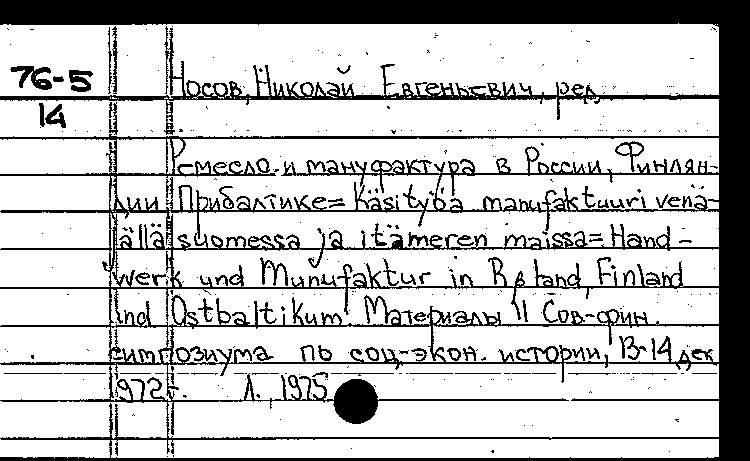 76-5
14
Носов, Николай Евгеньевич, ред.
Ремесло и мануфактура в России, Финлян-
дии, Прибалтике= Käsityöä manufaktuuri venä-
jällä suomessa ja itämeren maissa= Hand-
werk und Munufaktur in Rußland, Finland
und Ostbaltikum. Материалы II Сов-фин.
симпозиума по соц-экон. истории, 13-14 дек
1972г. Л., 1975